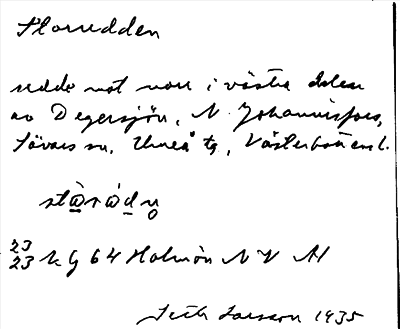 Storudden
udde mot norr i västra delen
av Degersjön, N. Johannisfors,
Sävars sn, Umeå tg, Västerbottens l.
23 k g 64 Holmön NV
23
Seth Larsson 1935